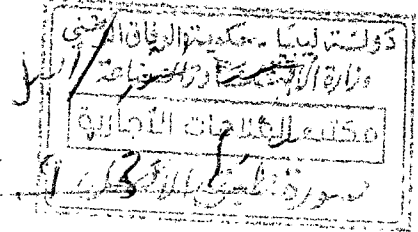 دولة ليبيا - حكومة الوفاق الوطني
وزارة الاقتصاد والصناعة
مكتب العلامات التجارية
صورة طبق الأصل